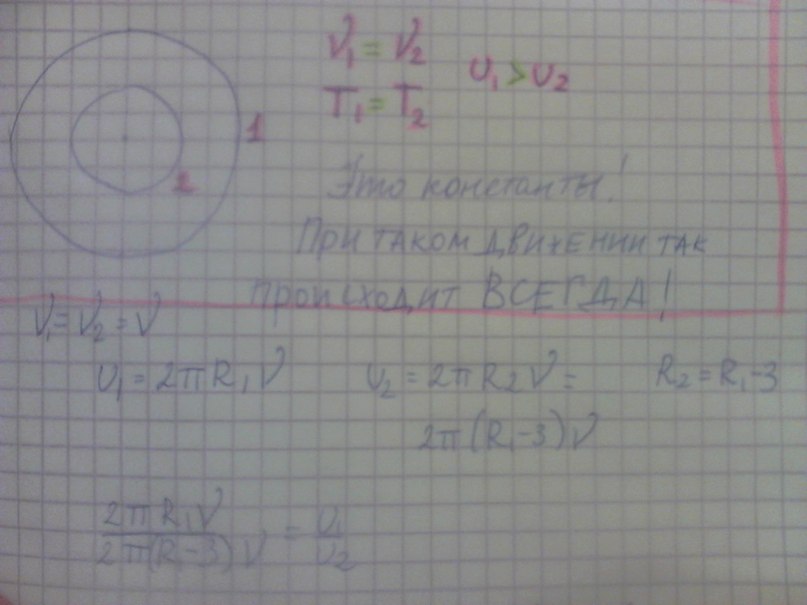 ν₁ = ν₂
T₁ = T₂
υ₁ > υ₂
1
2
Это константы!
При таком движении так
происходит ВСЕГДА!
ν₁ = ν₂ = ν
υ₁ = 2πR₁ν
υ₂ = 2πR₂ν =
R₂ = R₁-3
2π(R₁-3)ν
2πR₁ν / 2π(R-3)ν = υ₁ / υ₂